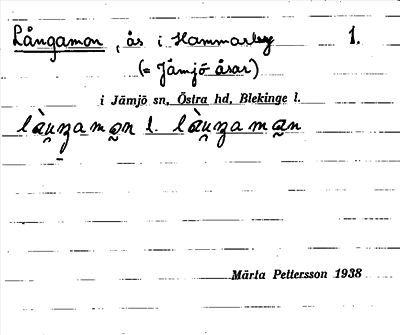 Långamon, ås i Hammarby 1.
(= Jämjö åsar)
i Jämjö sn, Östra hd, Blekinge l.
Märta Pettersson 1938